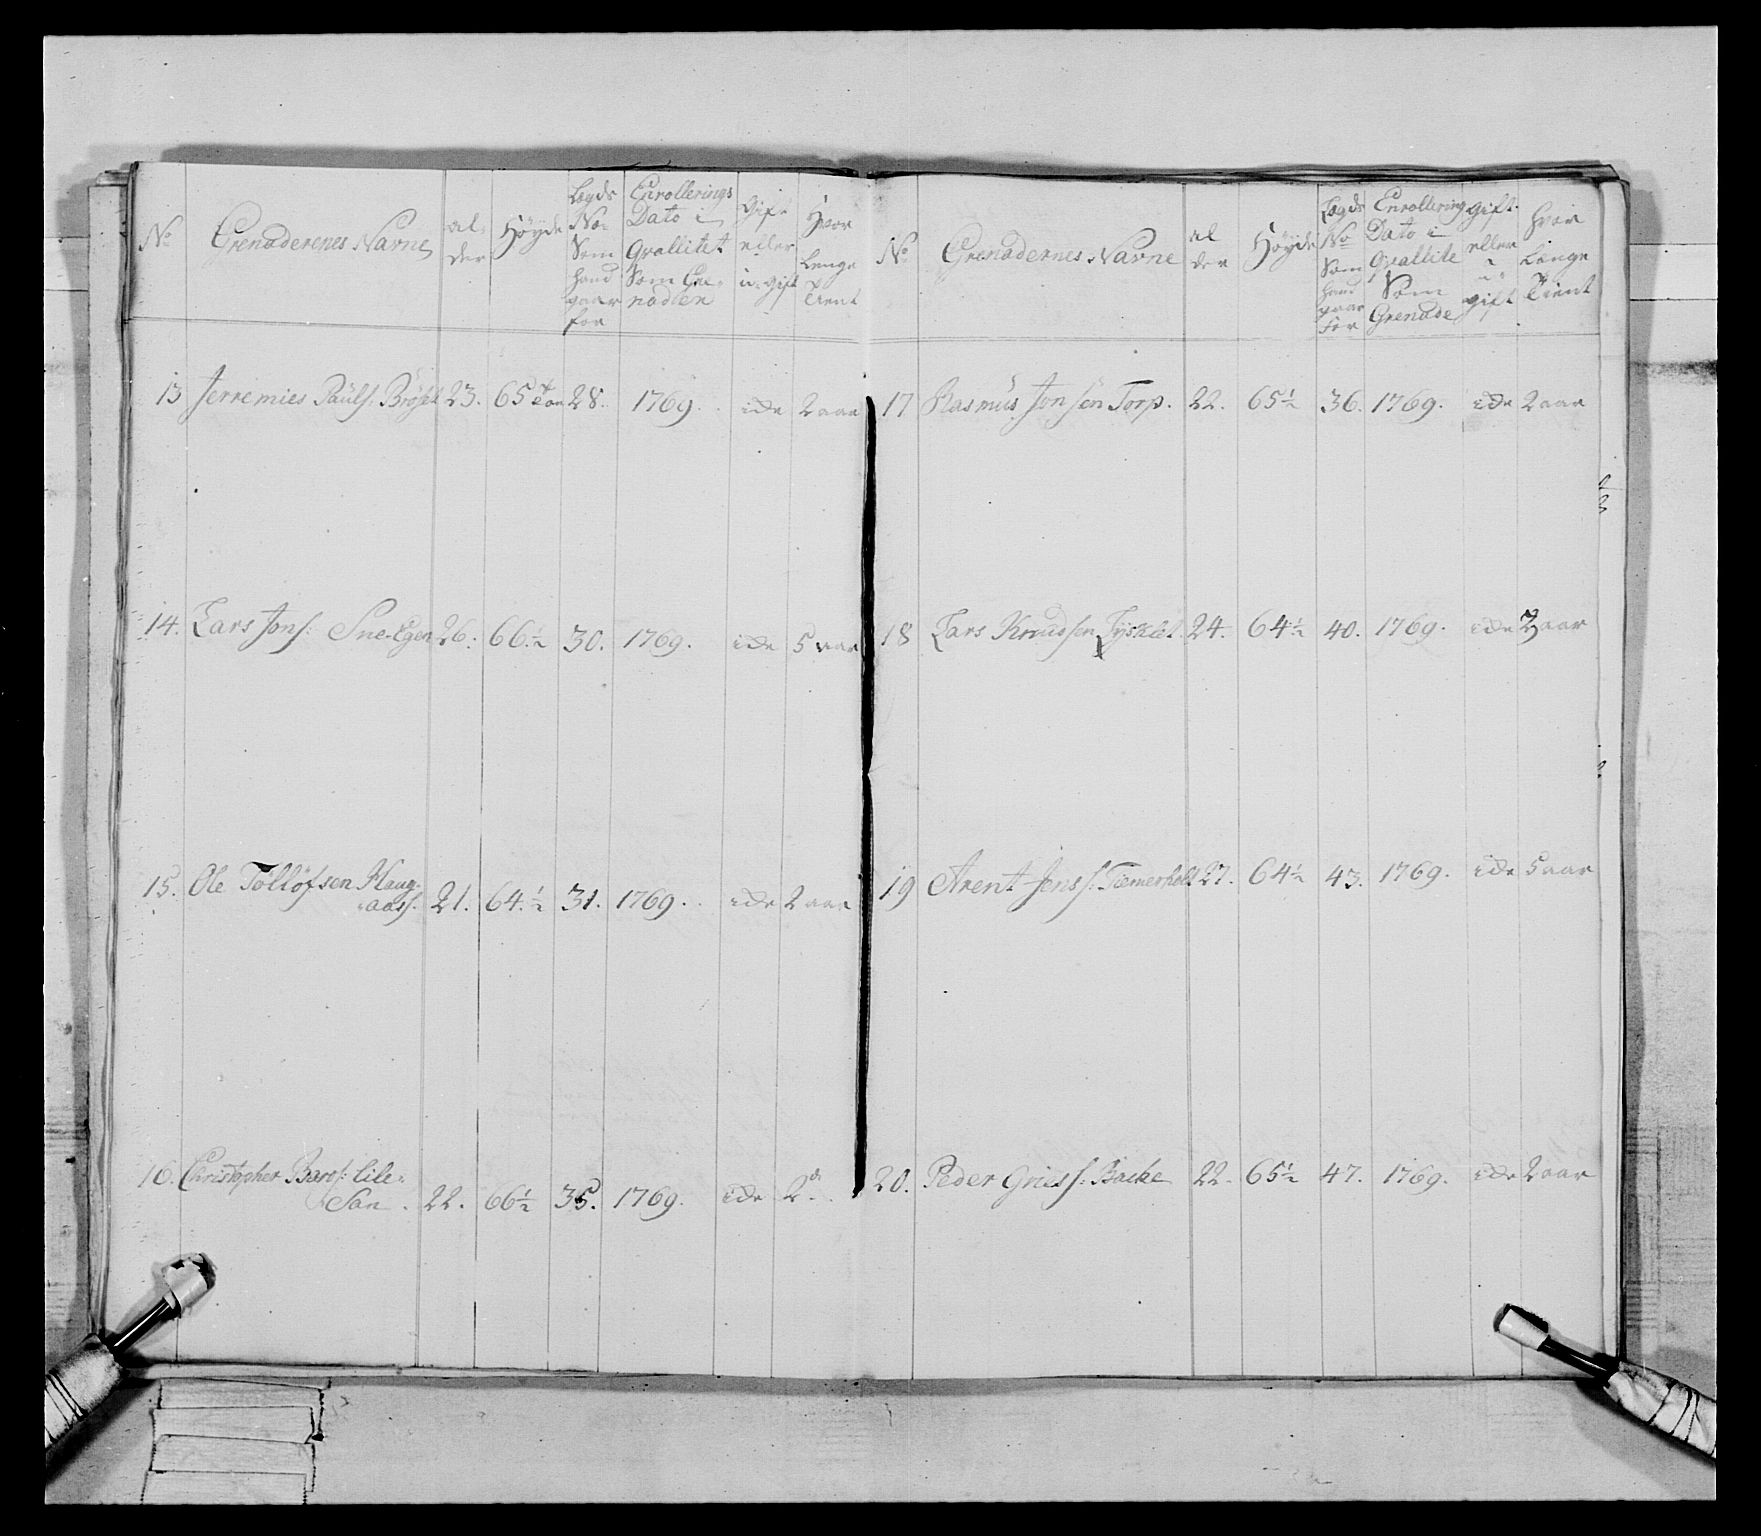 No Grenaderenes Navne al- der Höyde Lægds No Som hand gaar for Enrollerings Dato i Qvallitet Som Gre- nadeer Gift eller u-gift Hvor Lenge Tient
13 Jerremies Pauls: Bröset 23. 65 28. 1769. ide 2 aar
14. Lars Jons: Sne-Egen 26. 66 ½ 30. 1769. ide 5 aar
15. Ole Tollöfsen Haug-
aass. 21. 64 ½ 31. 1769. ide 2 aar
16. Christopher Baros: Lile-
San. 22. 66 ½ 35. 1769. ide 2
No Grenadernes Navne al der Höyde Lægds No Som hand gaar for Enrollering Dato i Qvallite Som Grenade Gift eller u gift hvor Længe Tient
17 Rasmus Jonsen Torp. 22. 65 ½ 36. 1769. ide 2 aar
18 Lars Knudsen 24. 64 ½ 40. 1769. ide aar
19 Arent Jenss: Tiemerholt 27. 64 ½ 43. 1769. ide 5 aar
20. Peder Gries: Backe 22. 65 ½ 47. 1769. ide 2 aar